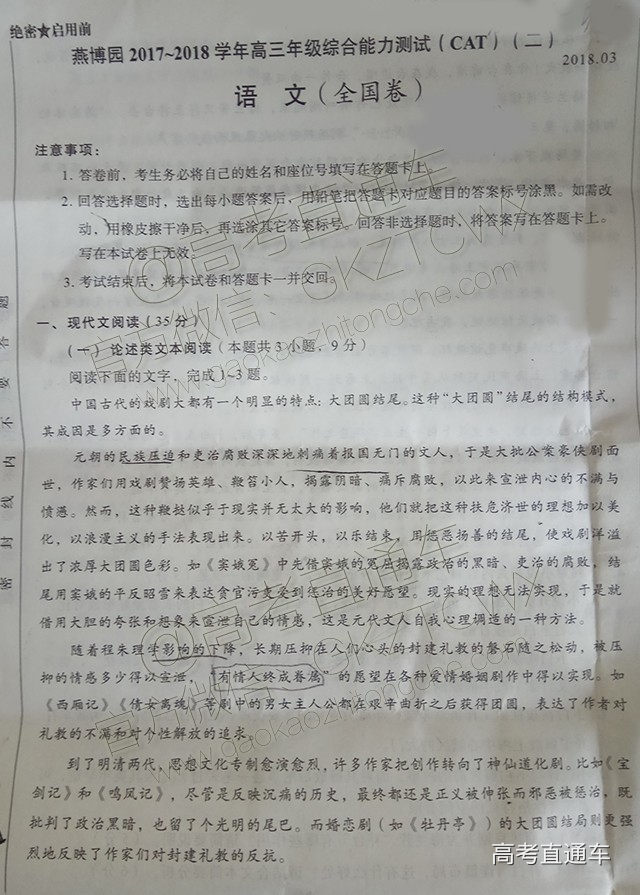 绝密★启用前
燕博园2017~2018学年高三年级综合能力测试(CAT)(二)
2018.03
语 文(全国卷)
注意事项:
1. 答卷前,考生务必将自己的姓名和座位号填写在答题卡上。
2. 回答选择题时,选出每小题答案后,用铅笔把答题卡对应题目的答案标号涂黑。如需改
动,用橡皮擦干净后,再选涂其它答案标号。回答非选择题时,将答案写在答题卡上。
写在本试卷上无效。
3. 考试结束后,将本试卷和答题卡一并交回。
一、现代文阅读(35分)
(一)论述类文本阅读(本题共3小题,9分)
阅读下面的文字,完成1~3题。
中国古代的戏剧大都有一个明显的特点:大团圆结尾。这种“大团圆”结尾的结构模式,
其成因是多方面的。
元朝的民族压迫和吏治腐败深深地刺痛着报国无门的文人,于是大批公案豪侠剧面
世,作家们用戏剧赞扬英雄、鞭笞小人,揭露阴暗、痛斥腐败,以此来宣泄内心的不满与
愤懑。然而,这种鞭挞似乎于现实并无太大的影响,他们就把这种扶危济世的理想加以美
化,以浪漫主义的手法表现出来。以苦开头,以乐结束,用惩恶扬善的结尾,使戏剧洋溢
出了浓厚大团圆色彩。如《窦娥冤》中先借窦娥的冤屈揭露政治的黑暗、吏治的腐败,结
尾用窦娥的平反昭雪来表达贪官污吏受到惩治的美好愿望。现实的理想无法实现,于是就
借用大胆的夸张和想象来宣泄自己的情感,这是元代文人自我心理调适的一种方法。
随着程朱理学影响的下降,长期压抑在人们心头的封建礼教的磐石随之松动,被压
抑的情感多少得以宣泄,“有情人终成眷属”的愿望在各种爱情婚姻剧作中得以实现。如
《西厢记》《倩女离魂》等剧中的男女主人公都在艰辛曲折之后获得团圆,表达了作者对
礼教的不满和对个性解放的追求。
到了明清两代,思想文化专制愈演愈烈,许多作家把创作转向了神仙道化剧。比如《宝
剑记》和《鸣凤记》,尽管是反映沉痛的历史,最终都还是正义被伸张而邪恶被惩治,既
批判了政治黑暗,也留了个光明的尾巴。而婚恋剧(如《牡丹亭》)的大团圆结局则更强
烈地反映了作家们对封建礼教的反抗。
密 封 线 内 不 要 答 题
@高考直通车
官方微信:GKZTCWX
www.gaokaozhitongche.com
@高考直通车
官方微信:GKZTCWX
www.gaokaozhitongche.com
高考直通车